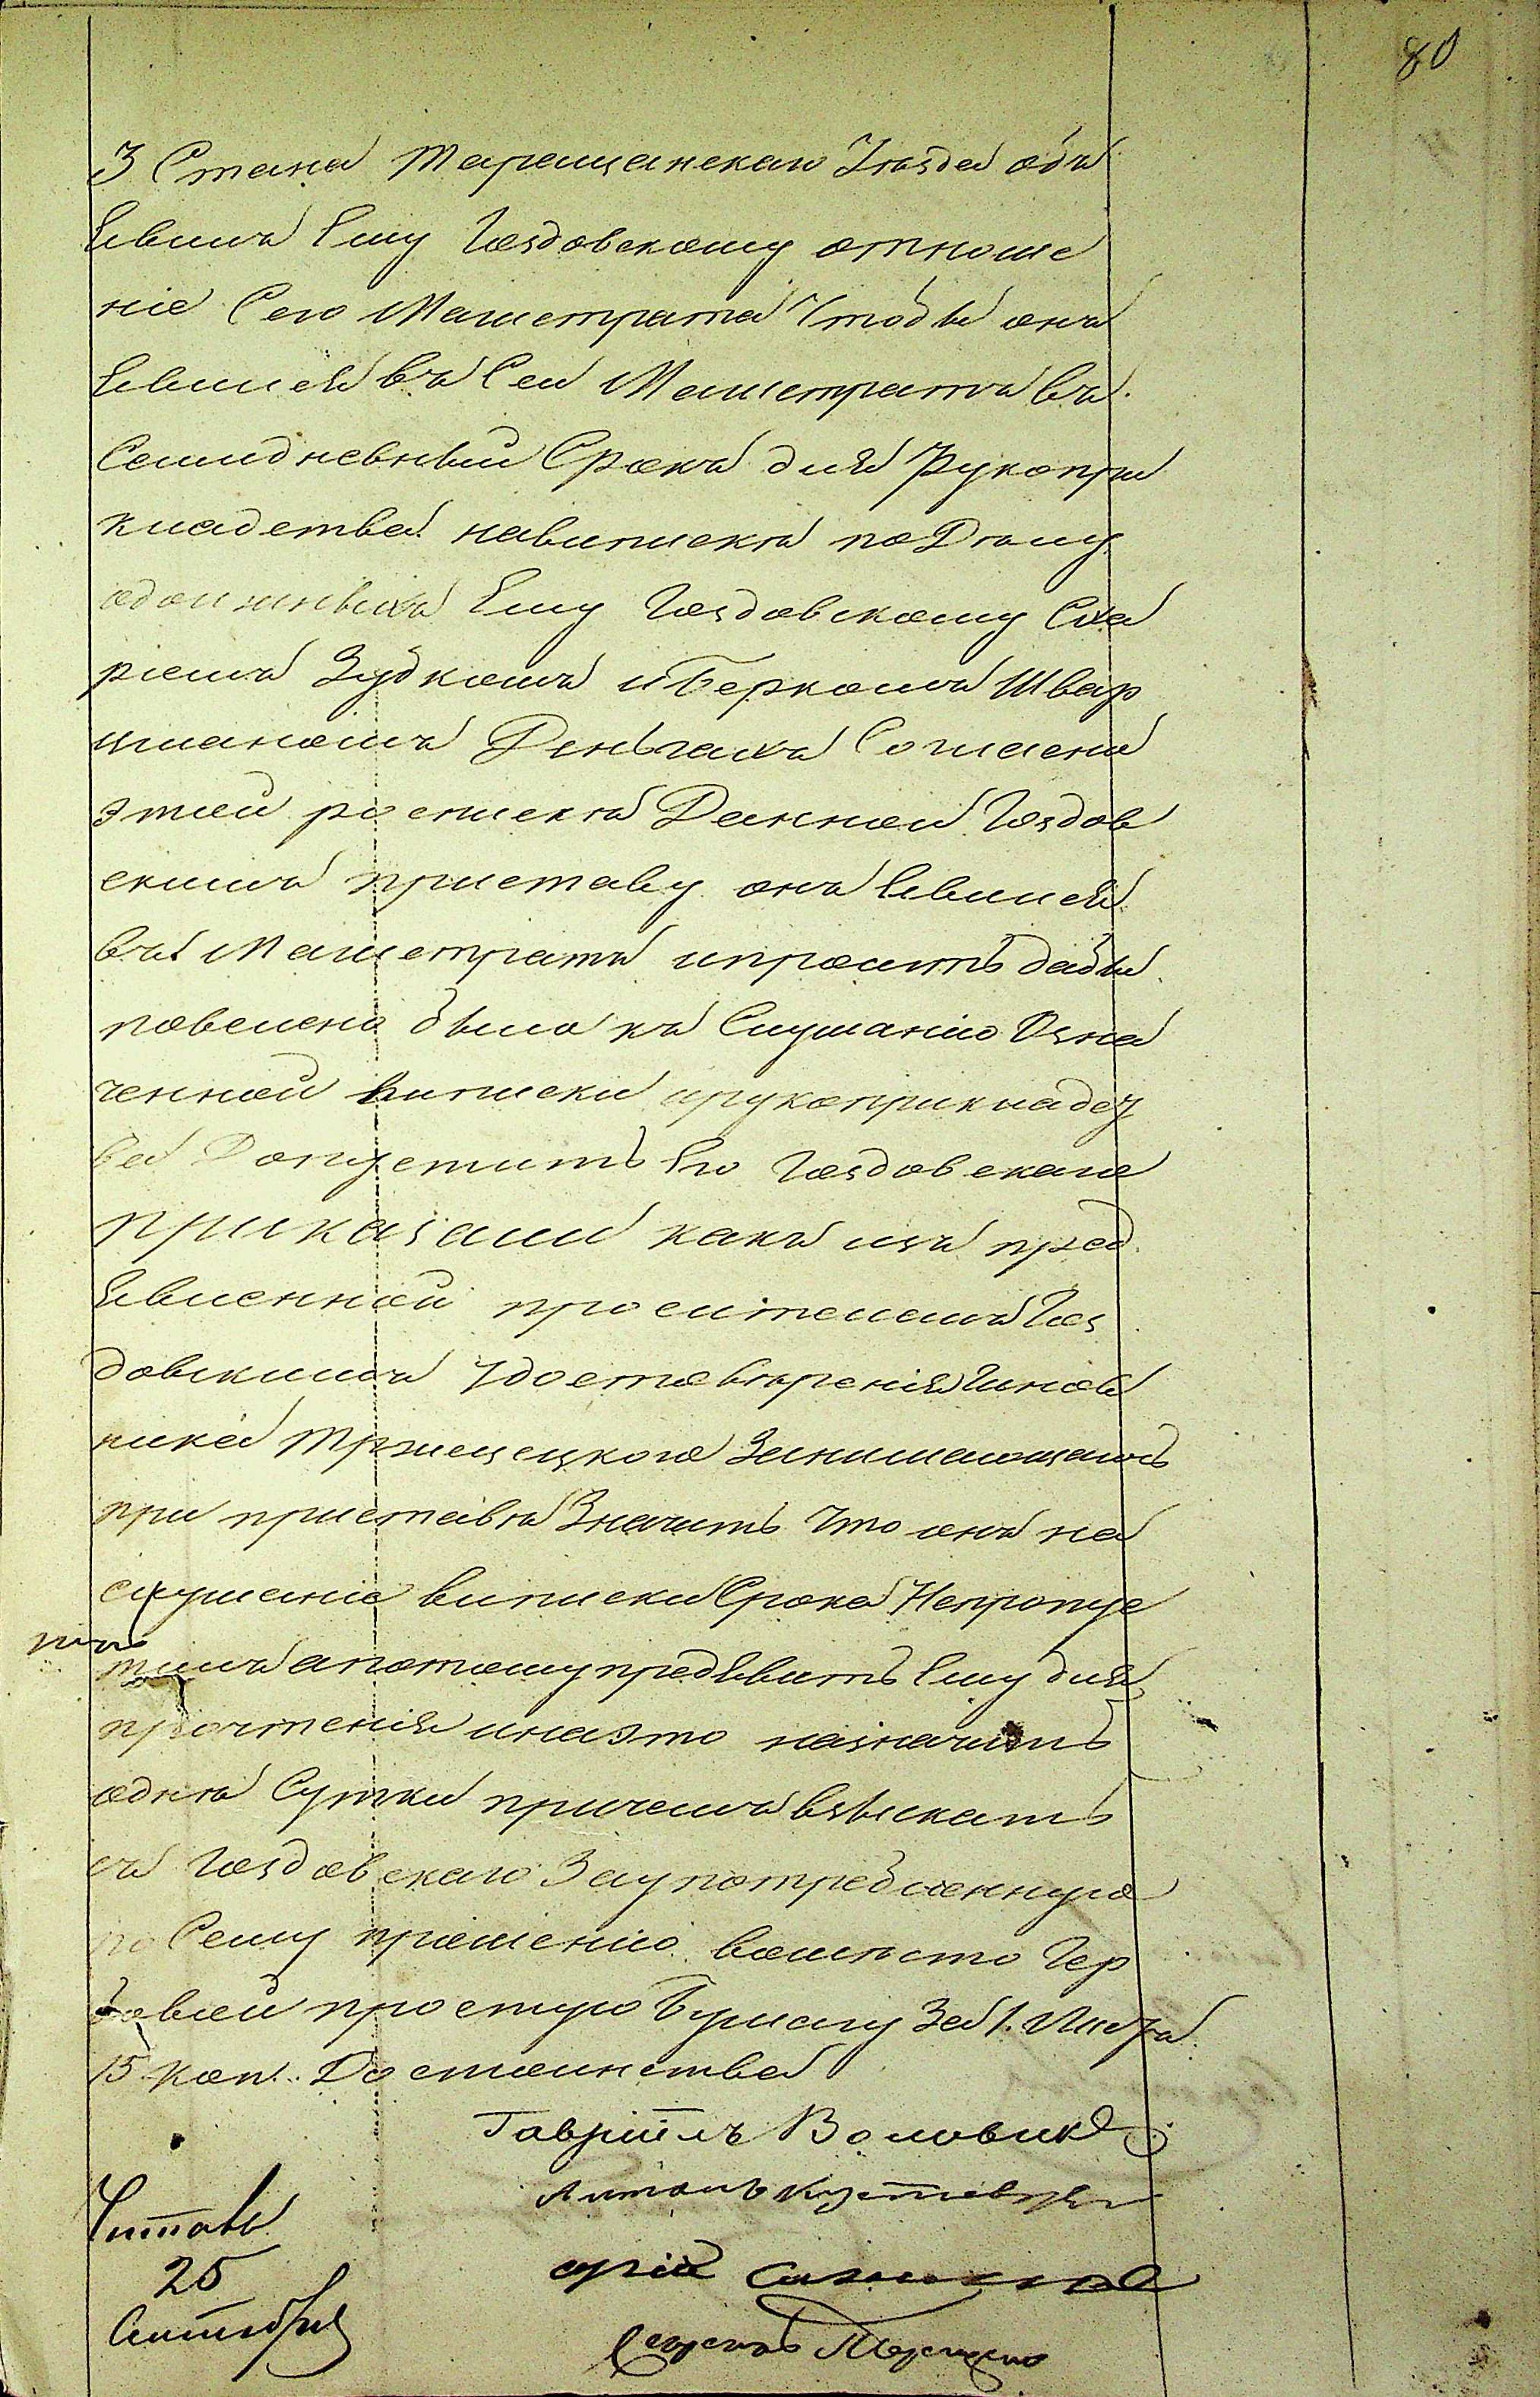 80
3 Стана Таращанскаго Уѣзда объ
явилъ Ему Гоздовскому отноше
ніе Сего Магистрата Чтобы онъ
явился въ Сей Магистратъ въ
Семидневный Срокъ для Рукопри
кладства навыпискѣ по Дѣлу
одолжныхъ Ему Гоздовскому Сха
ріемъ Зубкомъ и Беркомъ Швар
цманомъ Деньгахъ Согласно
этой роспискѣ Данной Гоздов
скимъ приставу онъ явился
въ Магистратъ ипроситъ дабы
повелено было къ Слушанію Озна
ченной выписки ирукоприкладст
ва Допустить Его Гоздовскаго
приказали какъ изъ пред
явленной просителемъ Гоз
довскимъ Удостовѣренія Чинов
ника Тржецецкого Занимающагось
при приставѣ Значитъ Что онъ на
слушаніе выписки Срока Непропус
тилъ апотому предъявить Ему для
прочтенія инаэто назначить
однѣ Сутки причемъ взыскать
съ Гоздовскаго Заупотребленную
по Сему прошенію вомѣсто Гер
бовой простую Бумагу За 1. Листъ
15 коп. Достоинства
Гавріилъ Воловик
Антонъ
Читалъ
25
Сентября